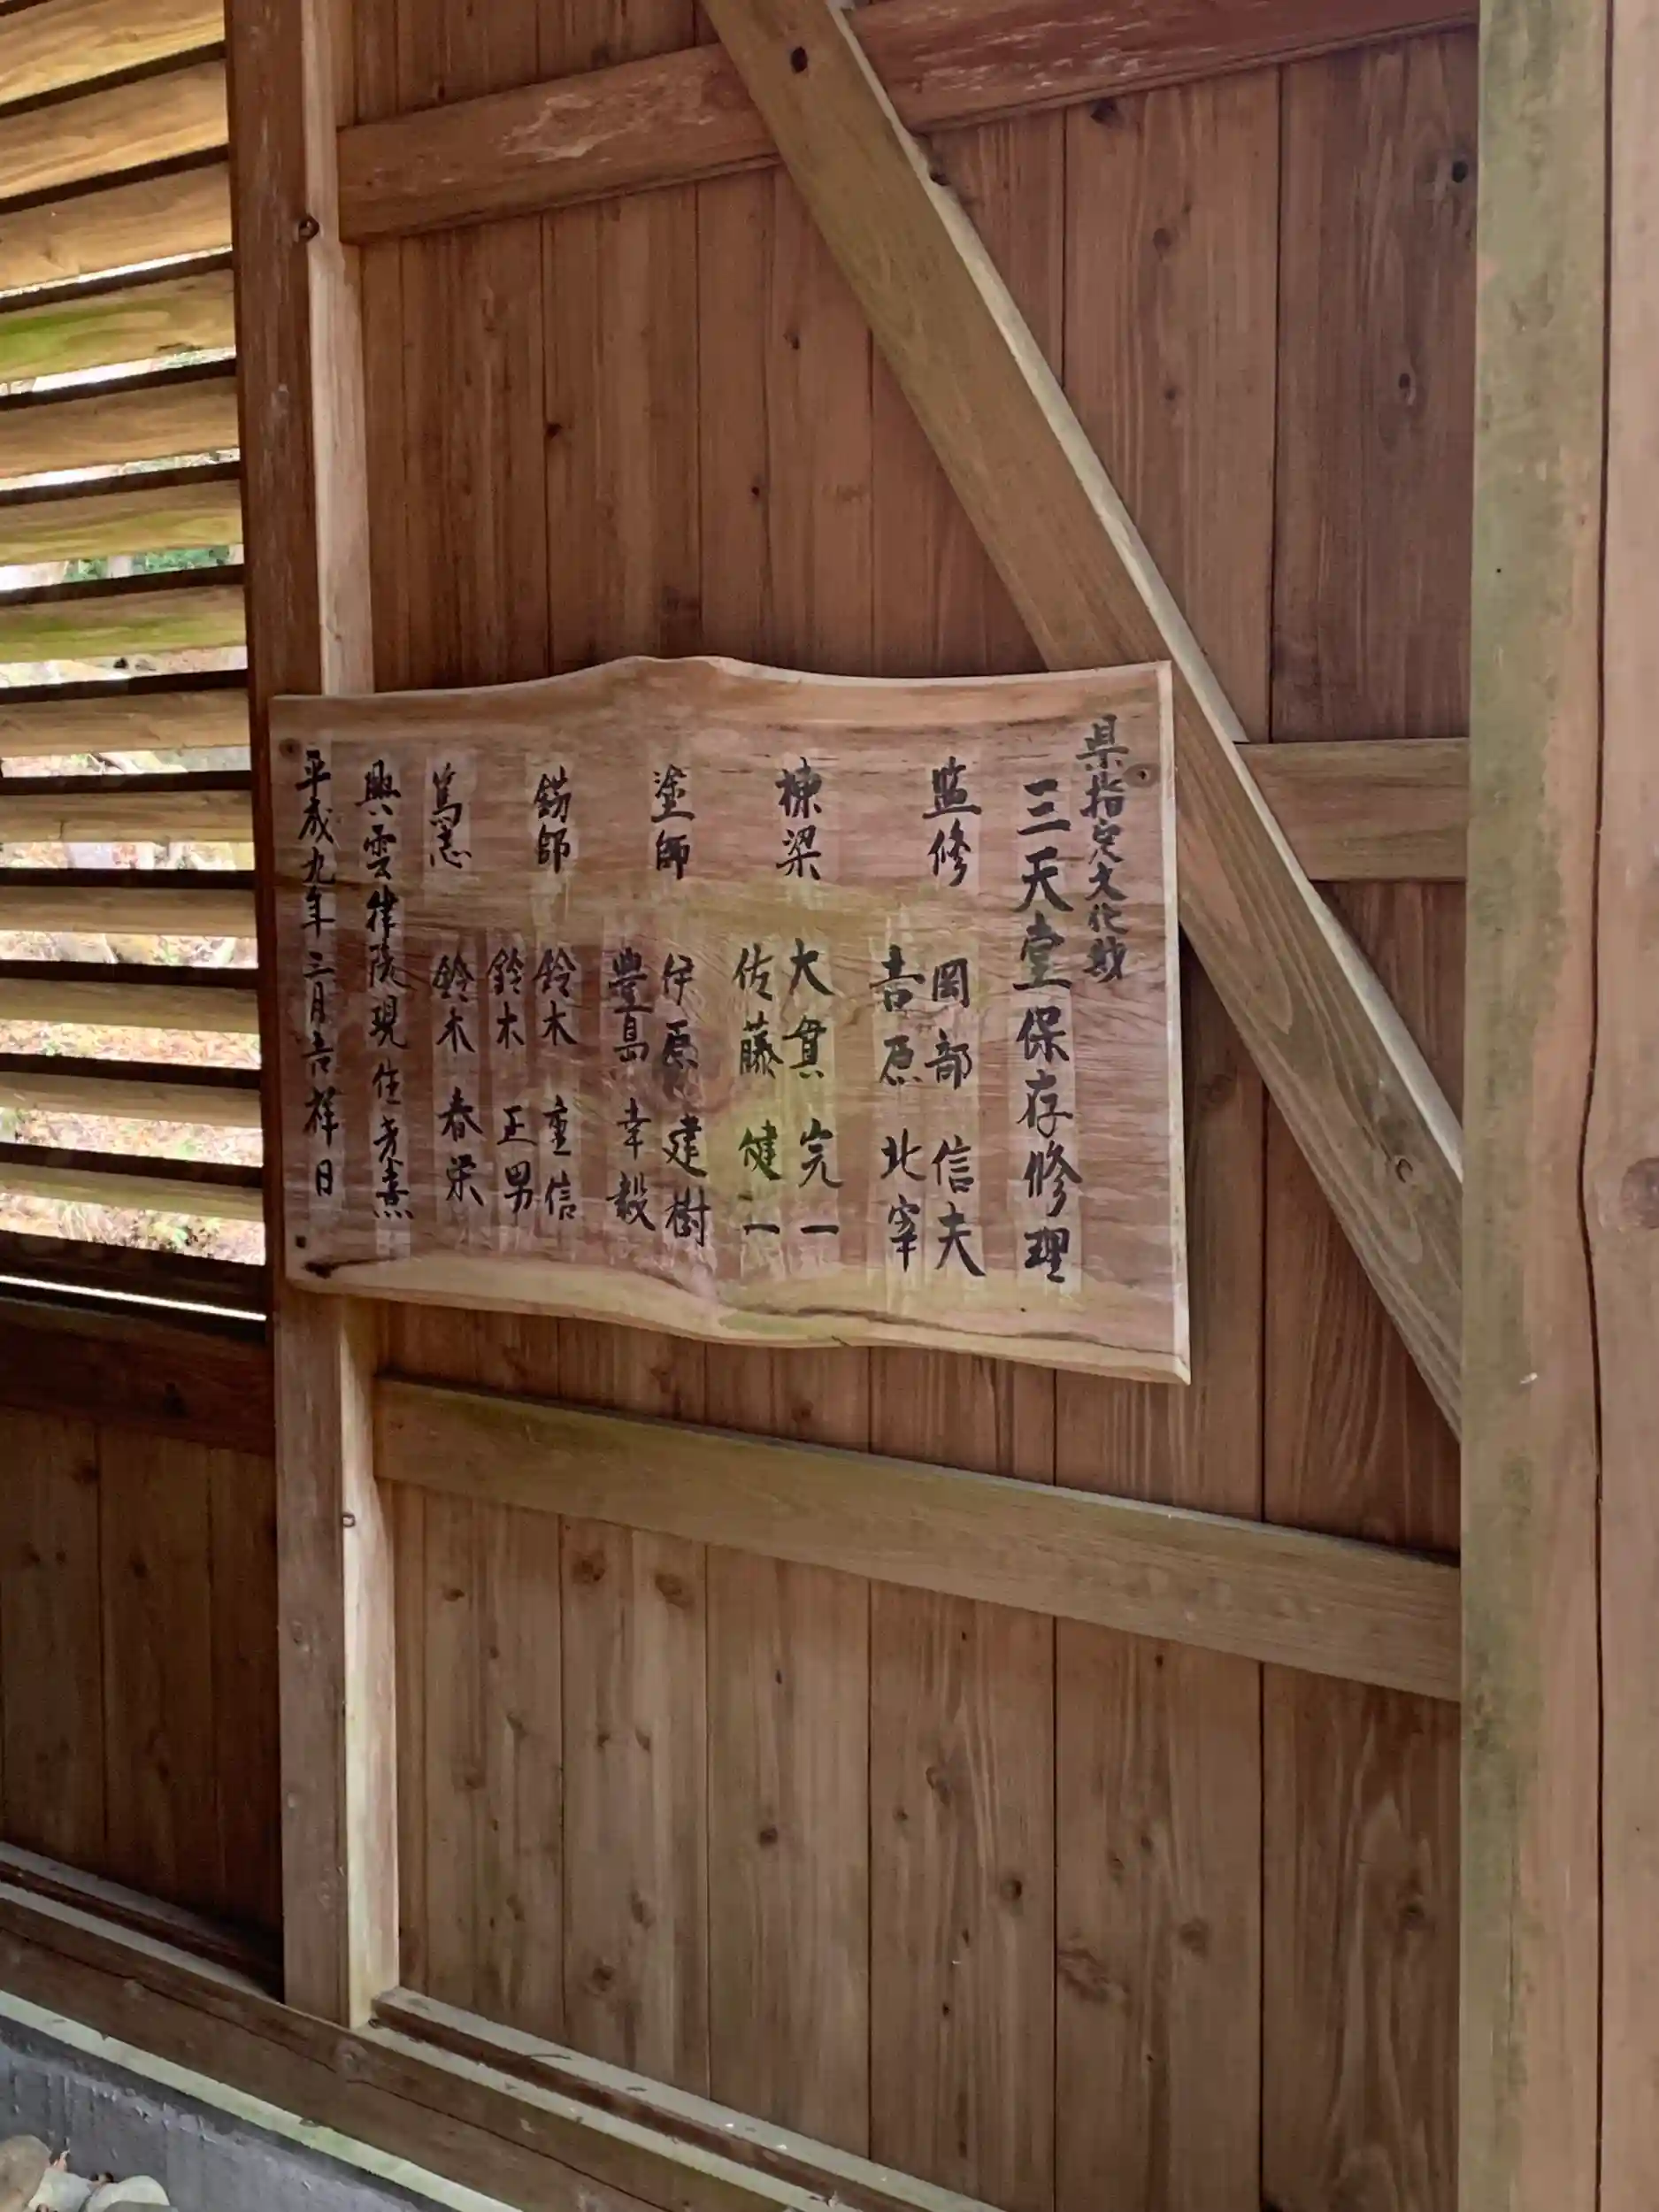 県指定文化財
三天堂保存修理
監修
岡部 信夫
吉原 北宰
棟梁
大貫 完一
佐藤 健一
塗師
伊原 建樹
豊島 幸毅
錺師
鈴木 重信
鈴木 正男
篤志
鈴木 春栄
興雲律院現住孝熹
平成九年三月吉祥日